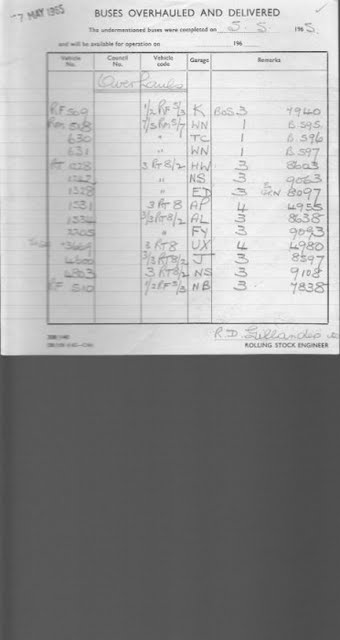 7 MAY 1965
BUSES OVERHAULED AND DELIVERED
The undermentioned buses were completed on 5. 5. 1965.
and will be available for operation on 196
Vehicle No. Council No. Vehicle code Garage Remarks
Overhauls
RF 509 1/2 RF 5/3 K BOS 3 7940
Rm 508 7/5 Rm 5/7 WN 1 B.595
630 " TC 1 B.596
631 " WN 1 B.597
RT 1028 3 RT8/2 HW 3 8603
" NS 3 9063
1328 " ED 3 GEN 8097
1531 3 RT 8 AP 4 4955
1534 3/3 RT8/2 AL 3 8638
2205 " FY 3 9093
3669 3 RT8 UX 4 4980
4600 3/3 RT8/2 J 3 8597
4803 3 RT8/2 NS 3 9108
RF 510 1/2 RF 5/3 NB 3 7838
R.D.
ROLLING STOCK ENGINEER